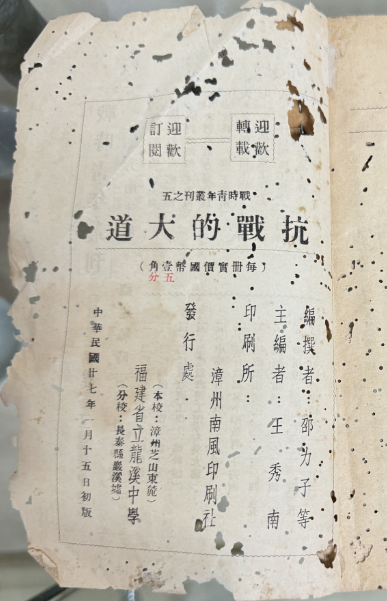 迎歡
轉載
迎歡
訂閱
戰時青年叢刊之五
抗戰的大道
（每冊實價國幣壹角）
五分
編撰者：邵力子等
主編者：王秀南
印刷所：
漳州南風印刷社
發行處：
福建省立龍溪中學
（本校：漳州芝山東）
（分校：長泰縣巖溪墟）
中華民國廿七年一月十五日初版